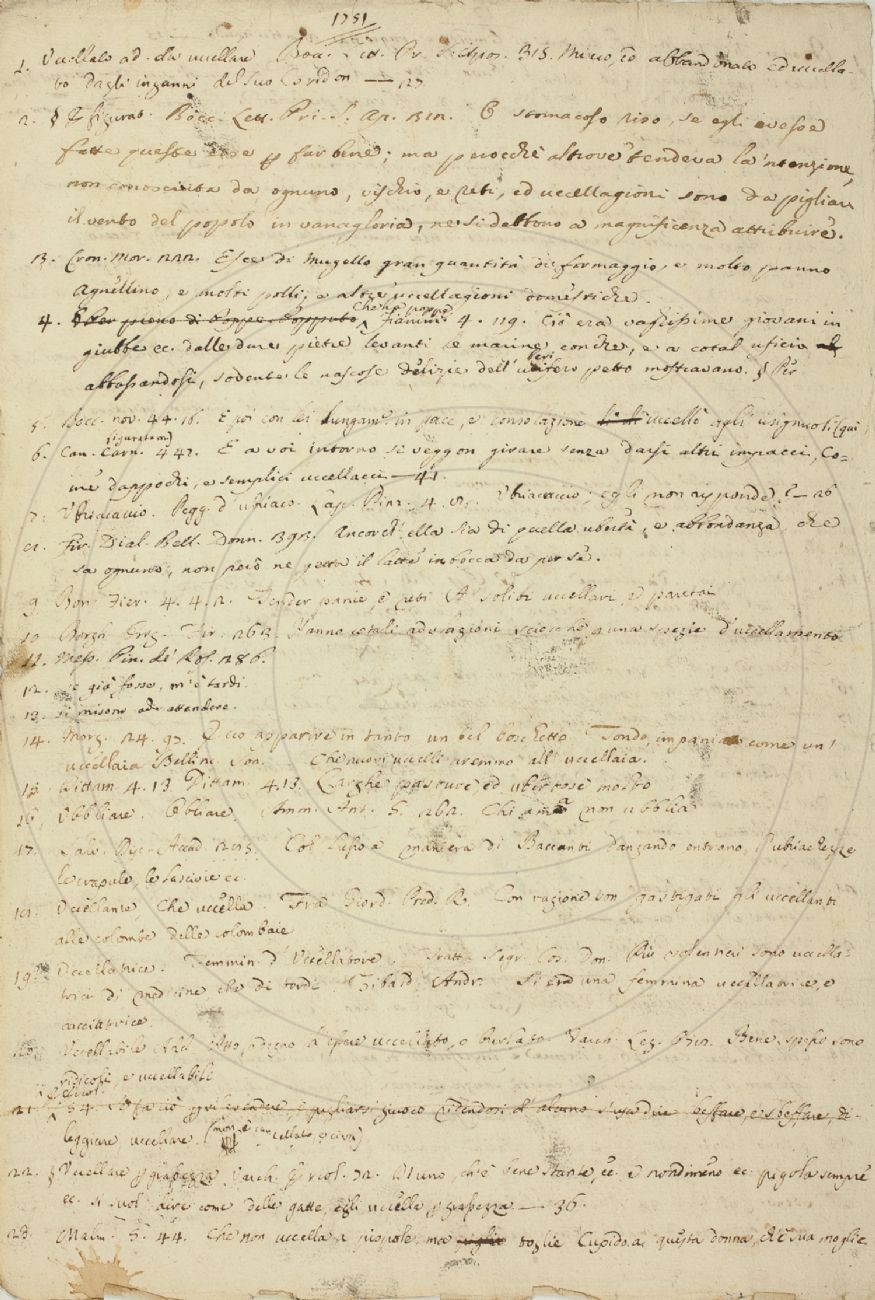 1751
1. Uccellato ad. da uccellare Bocc. Lett. Pr. S. Apos. 315. Misero, ed abbandonato ed uccella-
to dagli inganni del suo Coridon — 127
2. § E figurat. Bocc. Lett. Pri. S. Ap. È stomacoso riso, se egli avesse
fatte queste cose p far bene; ma perocchè altrove tendeva la 'ntenzione,
non conosciuta da ognuno, vischio, e reti, ed uccellagioni sono da pigliare
il vento del popolo in vanagloria, ne si debbono a magnificenza attribuire.
13. Cron. Mor. Esce di Mugello gran quantità di formaggio, e molto panno
Agnellino, e molti polli, e altre uccellagioni domestiche.
Che ha poppe
4. § Per pieno di poppe Fiamm. 4. 119. Ciò era vassissime giovani in
giubbe ec. dalle dure pietre levanti le marine conche, e a cotal uficio
abbassandosi, sovente le nascose delizie dell' petto mostravano. § Per
5. Bocc. nov. 44. 16. E poi con lei lungam. in pace, e consolazione uccellò agli usignuoli (qui
figuratam)
6. Can. Carn. 442. E a voi intorno si veggon girare senza darsi altri impacci, Co-
me dappochi, e semplici uccellacci — 41
7. Ubriacaccio. Pegg. d' Ubriaco. Lasc. Pinz. 4. Ubriacaccio; egli non risponde.
Fir. Dial. Bell. Donn. 393. Ancorchè ella sia di quella ubertà, e abbondanza, che
sa ognuno, non però ne getta il latte in bocca da per sè.
9 Bon. Fier. 4. 4. 2. Tender panie, e reti A' soliti uccellari, e paretai
10 Borgh. Orig. Fir. 263. Hanno cotali adorazioni sciocche, a una spezie d'uccellamento
11. Mess. Pin. di Rof. 286.
12. se già fosse, m'è tardi.
13. si misono ad attendere.
14. Morg. 24. 97. Ecco apparire in tanto un bel boschetto Tondo, impaniato come un'
uccellaia Bellinc. Son. Che nuovi uccelli aremmo all' uccellaia.
15. Dittam. 4. 13 Dittam. 4. 13. Larghe pasture ed ubertose molto
16. Ubbliare. Obbliare. Amm. Ant. 5. 262. Chi ama non ubblia
17. Salv. Disc. Accad. Col lusso a maniera di Baccanti danzando entrano, l'ubriachezze
le crapule, le lascivie ec.
Uccellante Che uccella. Fra Giord. Pred. R. Con ragione son gastigati gli uccellanti
alle colombe delle colombaie
19. Uccellatrice. Femmin. d' Uccellatore. Tratta. Segr. Cos. Don. Più volentieri sono uccella-
trici di medicine che di tordi. Tibald. Andr. Si era una femmina uccellatrice, e
cacciatrice.
20. Uccellabile Add. Atto, e degno d'esser uccellato, o burlato. Varch. Lez. Ben. Bene spesso sono
ridicoli, e uccellabili
Ercol.
21. 54. E fa ciò per ischernire, e pigliarsi giuoco ridendosi d' alcuno s'usa dire beffare, e sbeffare, di-
leggiare, uccellare
22. § Uccellare p grassezza Varch. Ercol. 72. D'uno, ch'è bene stante, ec. e nondimeno ec. pigola sempre
ec. si suol dire come delle gatte, egli uccella p grassezza — 36.
23. Malm. 5. 44. Che non uccella a pispole, ma toglie Cupido a questa donna, ch'è sua moglie